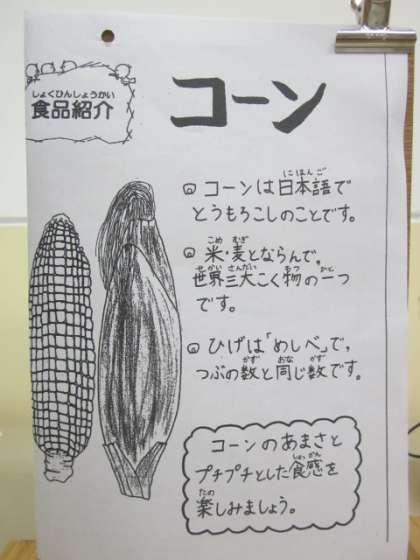 しょくひんしょうかい
食品紹介
コーン
コーンは日本語で
にほんご
とうもろこしのことです。
こめ むぎ
米・麦とならんで、
せかい さんだい もつ ひと
世界三大こく物の一つ
です。
ひげは「めしべ」で、
かず おな かず
つぶの数と同じ数です。
コーンのあまさと
しょっかん
プチプチとした食感を
たの
楽しみましょう。